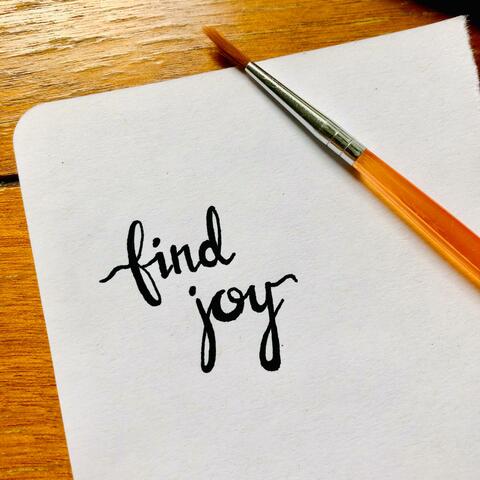 find
joy